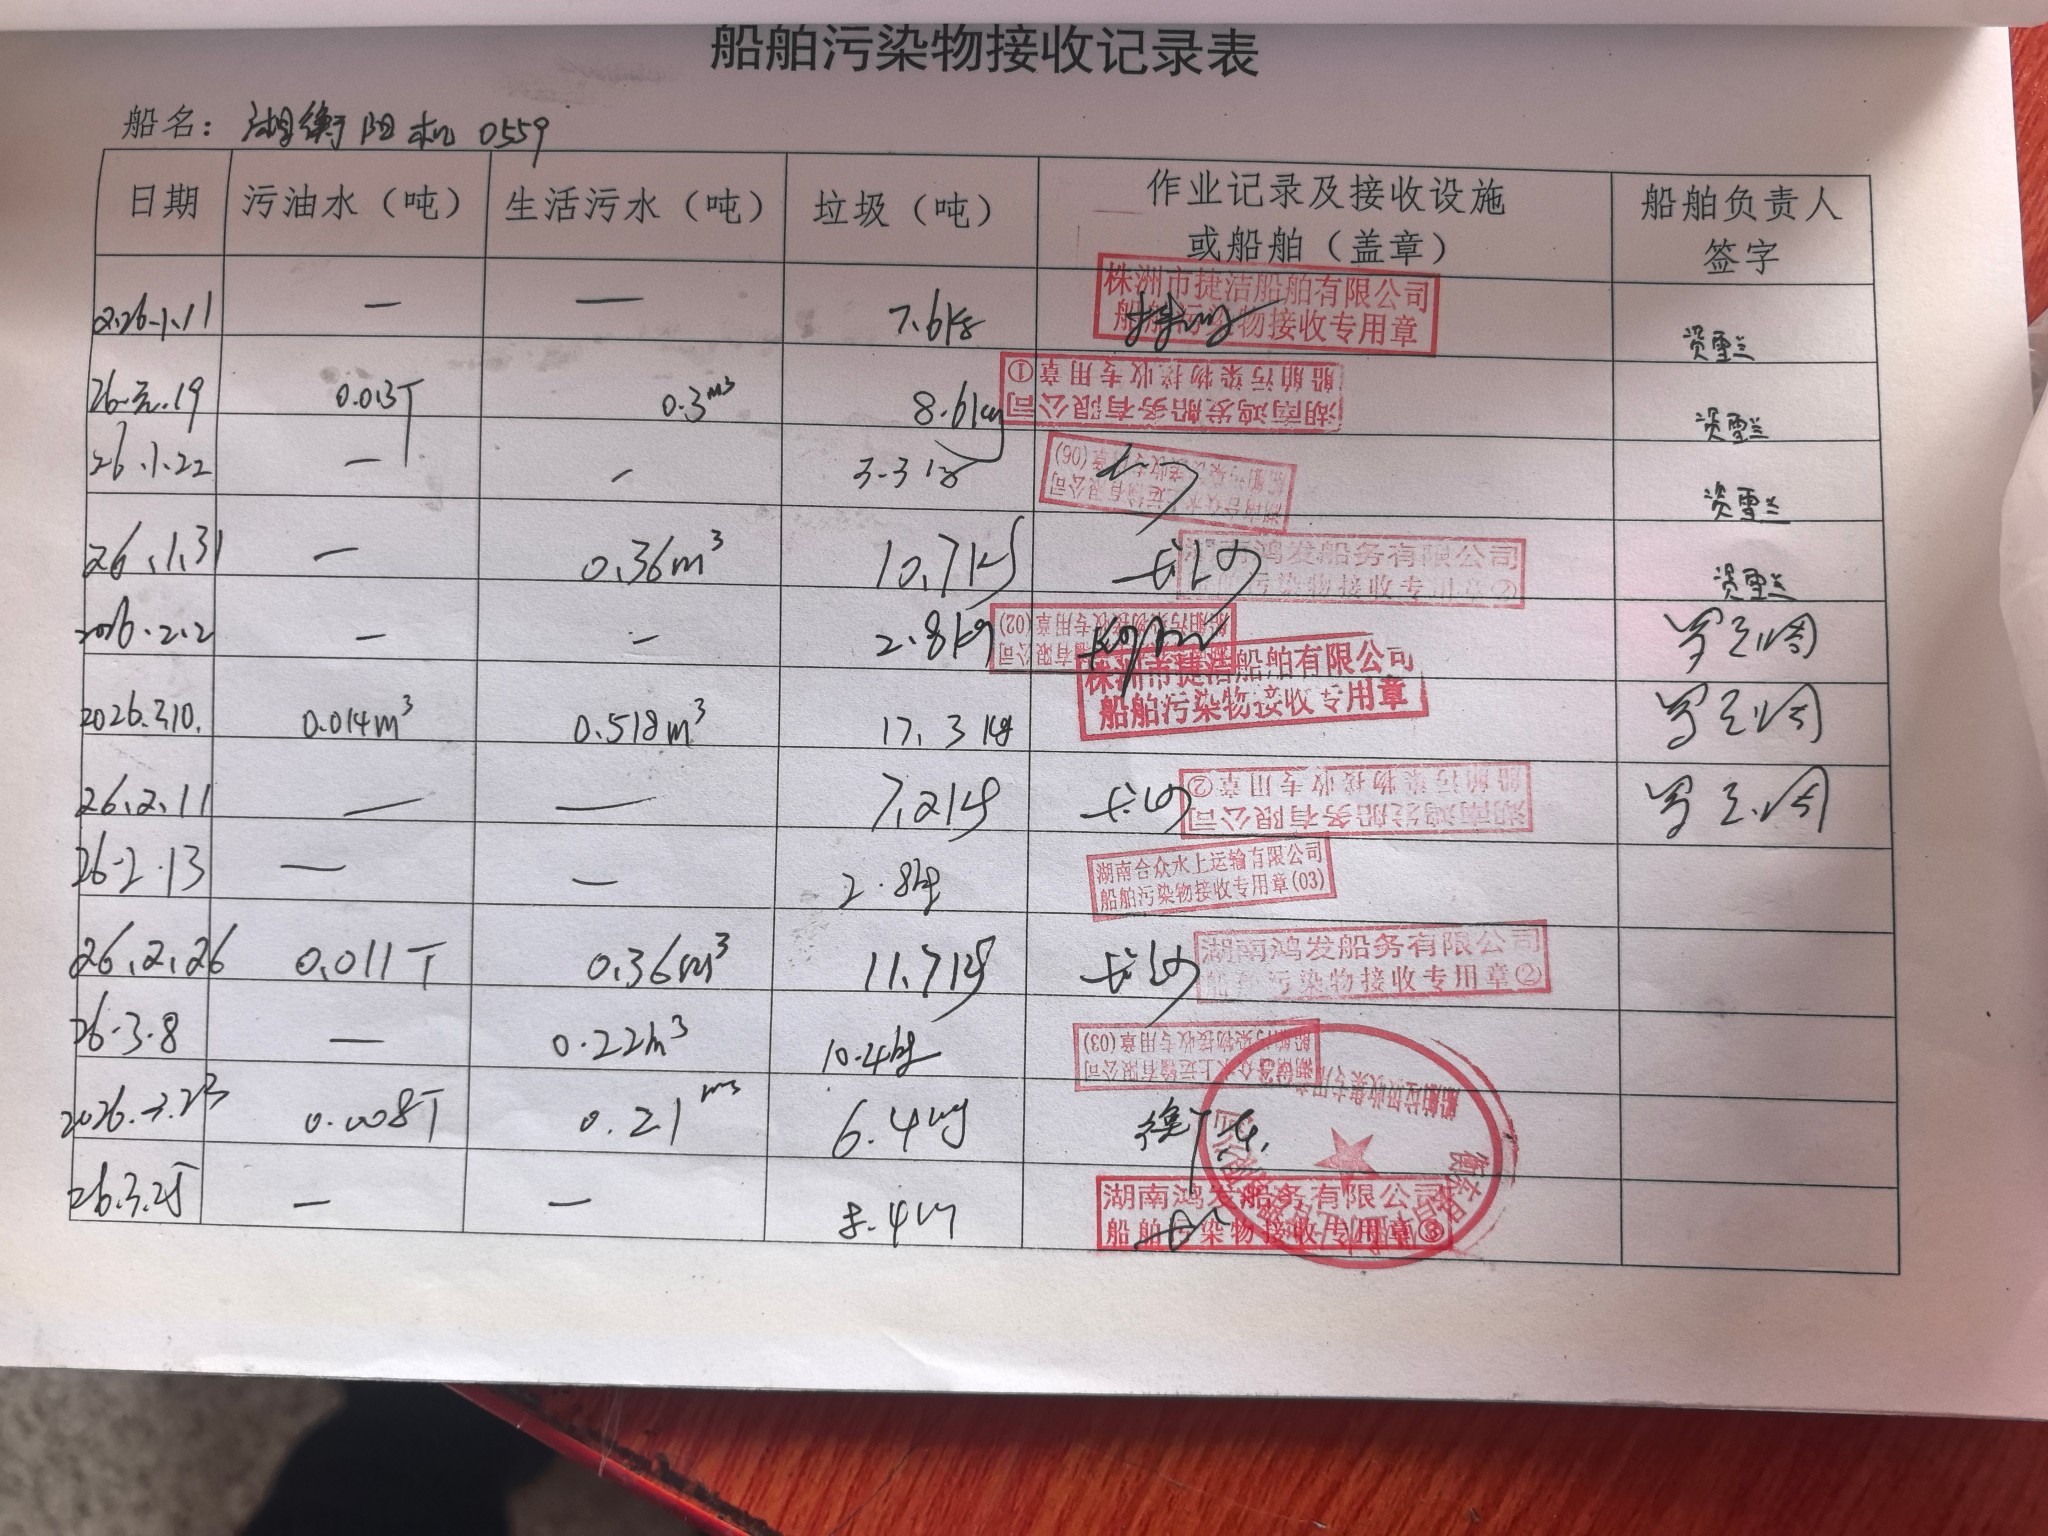 船舶污染物接收记录表
船名： 湘衡阳机 0559
日期 污油水（吨） 生活污水（吨） 垃圾（吨） 作业记录及接收设施或船舶（盖章） 船舶负责人签字
2.26.1.11 — — 7.6kg 株洲市捷洁船舶有限公司 船舶污染物接收专用章 资雪兰
26.元.19 0.013T 0.3m³ 8.6kg 湖南鸿发船务有限公司 船舶污染物接收专用章① 资雪兰
26.1.22 — — 3.3kg 湖南合众水上运输有限公司 船舶污染物接收专用章(06) 资雪兰
26.1.31 — 0.36m³ 10.7kg 长沙 湖南鸿发船务有限公司 船舶污染物接收专用章② 资雪兰
2026.2.2 — — 2.8kg 船舶污染物接收专用章(02)
2026.3.10. 0.014m³ 0.518m³ 17.3kg 株洲市捷洁船舶有限公司 船舶污染物接收专用章
26.2.11 — — 7.2kg 长沙 湖南鸿发船务有限公司 船舶污染物接收专用章②
26.2.13 — — 2.8kg 湖南合众水上运输有限公司 船舶污染物接收专用章(03)
26.2.26 0.011T 0.36m³ 11.7kg 长沙 湖南鸿发船务有限公司 船舶污染物接收专用章②
26.3.8 — 0.22m³ 10.4kg 湖南合众水上运输有限公司 船舶污染物接收专用章(03)
2026.3.23 0.008T 0.21m³ 6.4kg
26.3.25 — — 湖南鸿发船务有限公司 船舶污染物接收专用章③